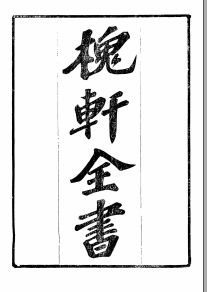 槐軒全書